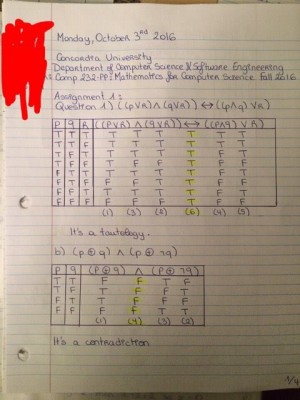 Monday, October 3rd 2016
Concordia University
Department of Computer Science & Software Engineering
Comp 232-PP: Mathematics for Computer Science Fall 2016
Assignment 1:
Question 1) ((p∨R) ∧ (q∨R)) ↔ ((p∧q) ∨ R)
P q R ((p∨R) ∧ (q∨R)) ↔ ((p∧q) ∨ R)
T T T T T T T T T
T T F T T T T T T
T F T T T T T F T
T F F T F F T F F
F T T T T T T F T
F T F F F T T F F
F F T T T T T F T
F F F F F F T F F
(1) (3) (2) (6) (4) (5)
It's a tautology.
b) (p ⊕ q) ∧ (p ⊕ ¬q)
P q (p ⊕ q) ∧ (p ⊕ ¬q)
T T F F T F
T F T F F T
F T T F F F
F F F F T T
(1) (4) (3) (2)
It's a contradiction
1/4